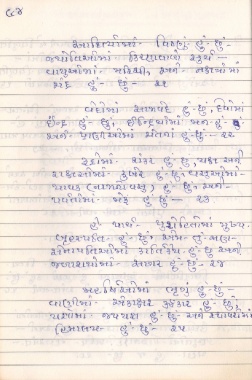 ૯૪
આદિત્યોમાં વિષ્ણુ હું છું-
જ્યોતિઓમાં કિરણવાળો સૂર્ય-
વાયુઓમાં મરીચી, અને નક્ષત્રોમાં
ચંદ્ર હું છું- ૨૧
વેદોમાં સામવેદ હું છું, દેવોમાં
ઈન્દ્ર હું છું, ઈન્દ્રિયોમાં મન હું છું
અને પ્રાણીઓમાં ચેતના હું છું- ૨૨
રુદ્રોમાં શંકર હું છું, યક્ષ અને
રાક્ષસોમાં કુબેર હું છું, વસુઓમાં
પાવક હું છું, અને
પર્વતોમાં મેરુ હું છું- ૨૩
હે પાર્થ- પુરોહિતોમાં મુખ્ય
બૃહસ્પતિ હું છું, એમ તું જાણ
સેનાપતિઓમાં કાર્તિકેય હું છું- અને
જળાશયોમાં સાગર હું છું- ૨૪
મહર્ષિઓમાં ભૃગુ હું છું-
વાણીમાં એકાક્ષર ૐકાર હું છું,
યજ્ઞોમાં જપયજ્ઞ હું છું- અને સ્થાવરોમાં
હિમાલય હું છું- ૨૫